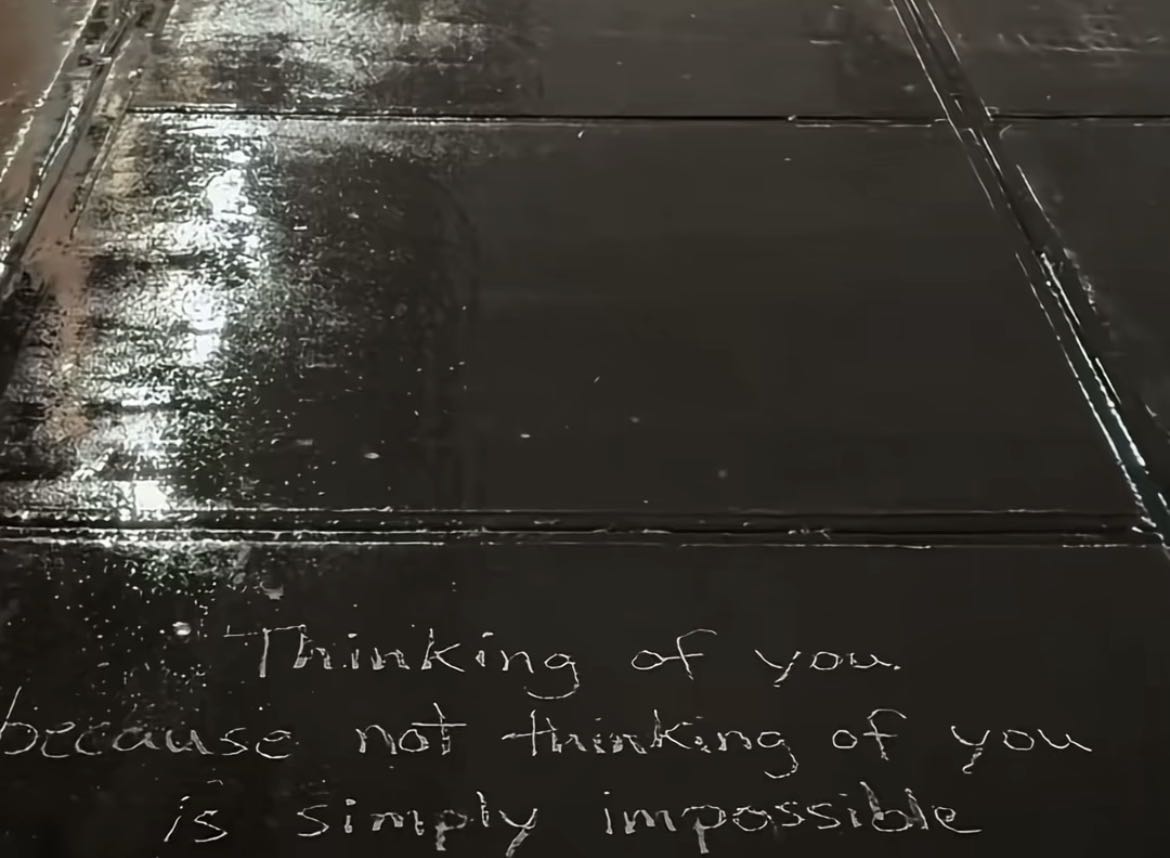 Thinking of you.
because not thinking of you
is simply impossible